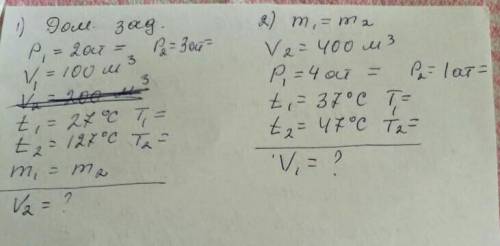 1) Дом. зад.
P₁ = 2ат = P₂ = 3ат =
V₁ = 100 м³
V₂ = 200 м³
t₁ = 27°C T₁ =
t₂ = 127°C T₂ =
m₁ = m₂
V₂ = ?
2) m₁ = m₂
V₂ = 400 м³
P₁ = 4ат = P₂ = 1ат =
t₁ = 37°C T₁ =
t₂ = 47°C T₂ =
V₁ = ?